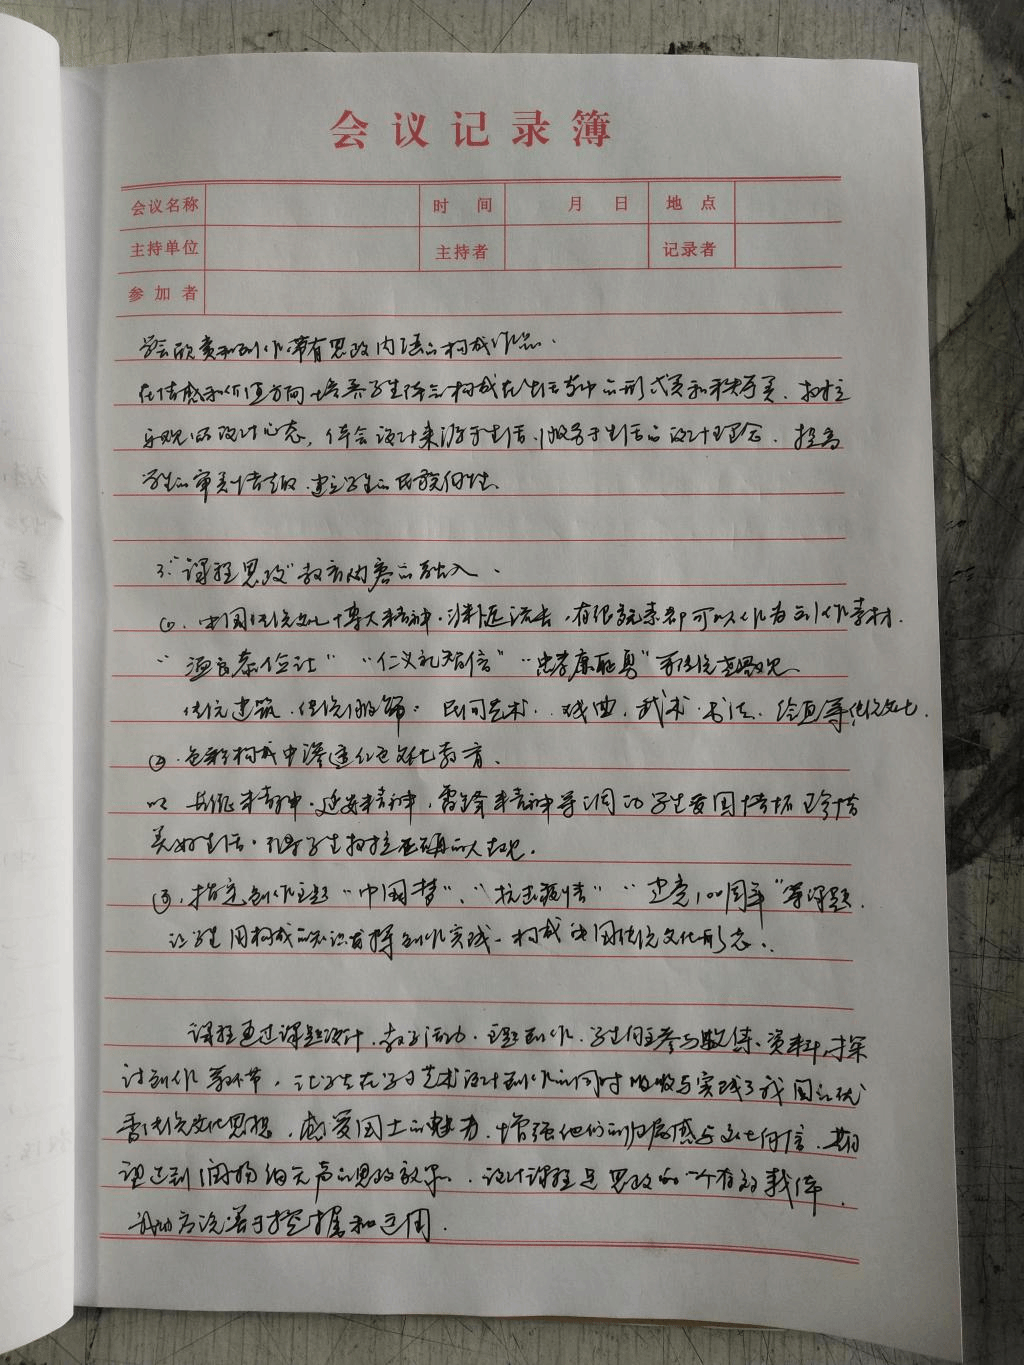 会议记录簿
会议名称 时间 月 日 地点
主持单位 主持者 记录者
参加者
学会欣赏和创作带有思政内涵的构成作品.
在情感和价值方向,培养学生体会构成在生活当中的形式美和秩序美、树立
乐观的设计心态,体会设计来源于生活、服务于生活的设计理念、提高
学生的审美情趣、建立学生的民族自信.
3."课程思政"教育内容的融入.
①. 中国传统文化博大精神.渊远流长,有很多元素都可以作为创作素材.
"温良恭俭让" "仁义礼智信" "忠孝廉耻勇"等传统道德观
传统建筑、传统服饰、民间艺术、戏曲、武术、书法、绘画等传统文化.
②.色彩构成中渗透红色文化教育、
以长征精神、延安精神,雷锋精神等 学生爱国情怀 珍惜
美好生活.引导学生树立正确的人生观.
③.指定创作主题"中国梦"、"抗击疫情" "建党100周年"等课题.
让学生用构成的知识发挥创作实践.构成中国传统文化形态.
课程通过课题设计、教学活动、主题创作、学生自主参与收集资料、探
讨创作等环节,让学生在学习艺术设计创作的同时吸收与实践了我国的优
秀传统文化思想,感受国土的魅力,增强他们的归属感与文化自信,
达到润物细无声的思政效果.设计课程是思政的一个有效载体,
善于挖掘和运用.